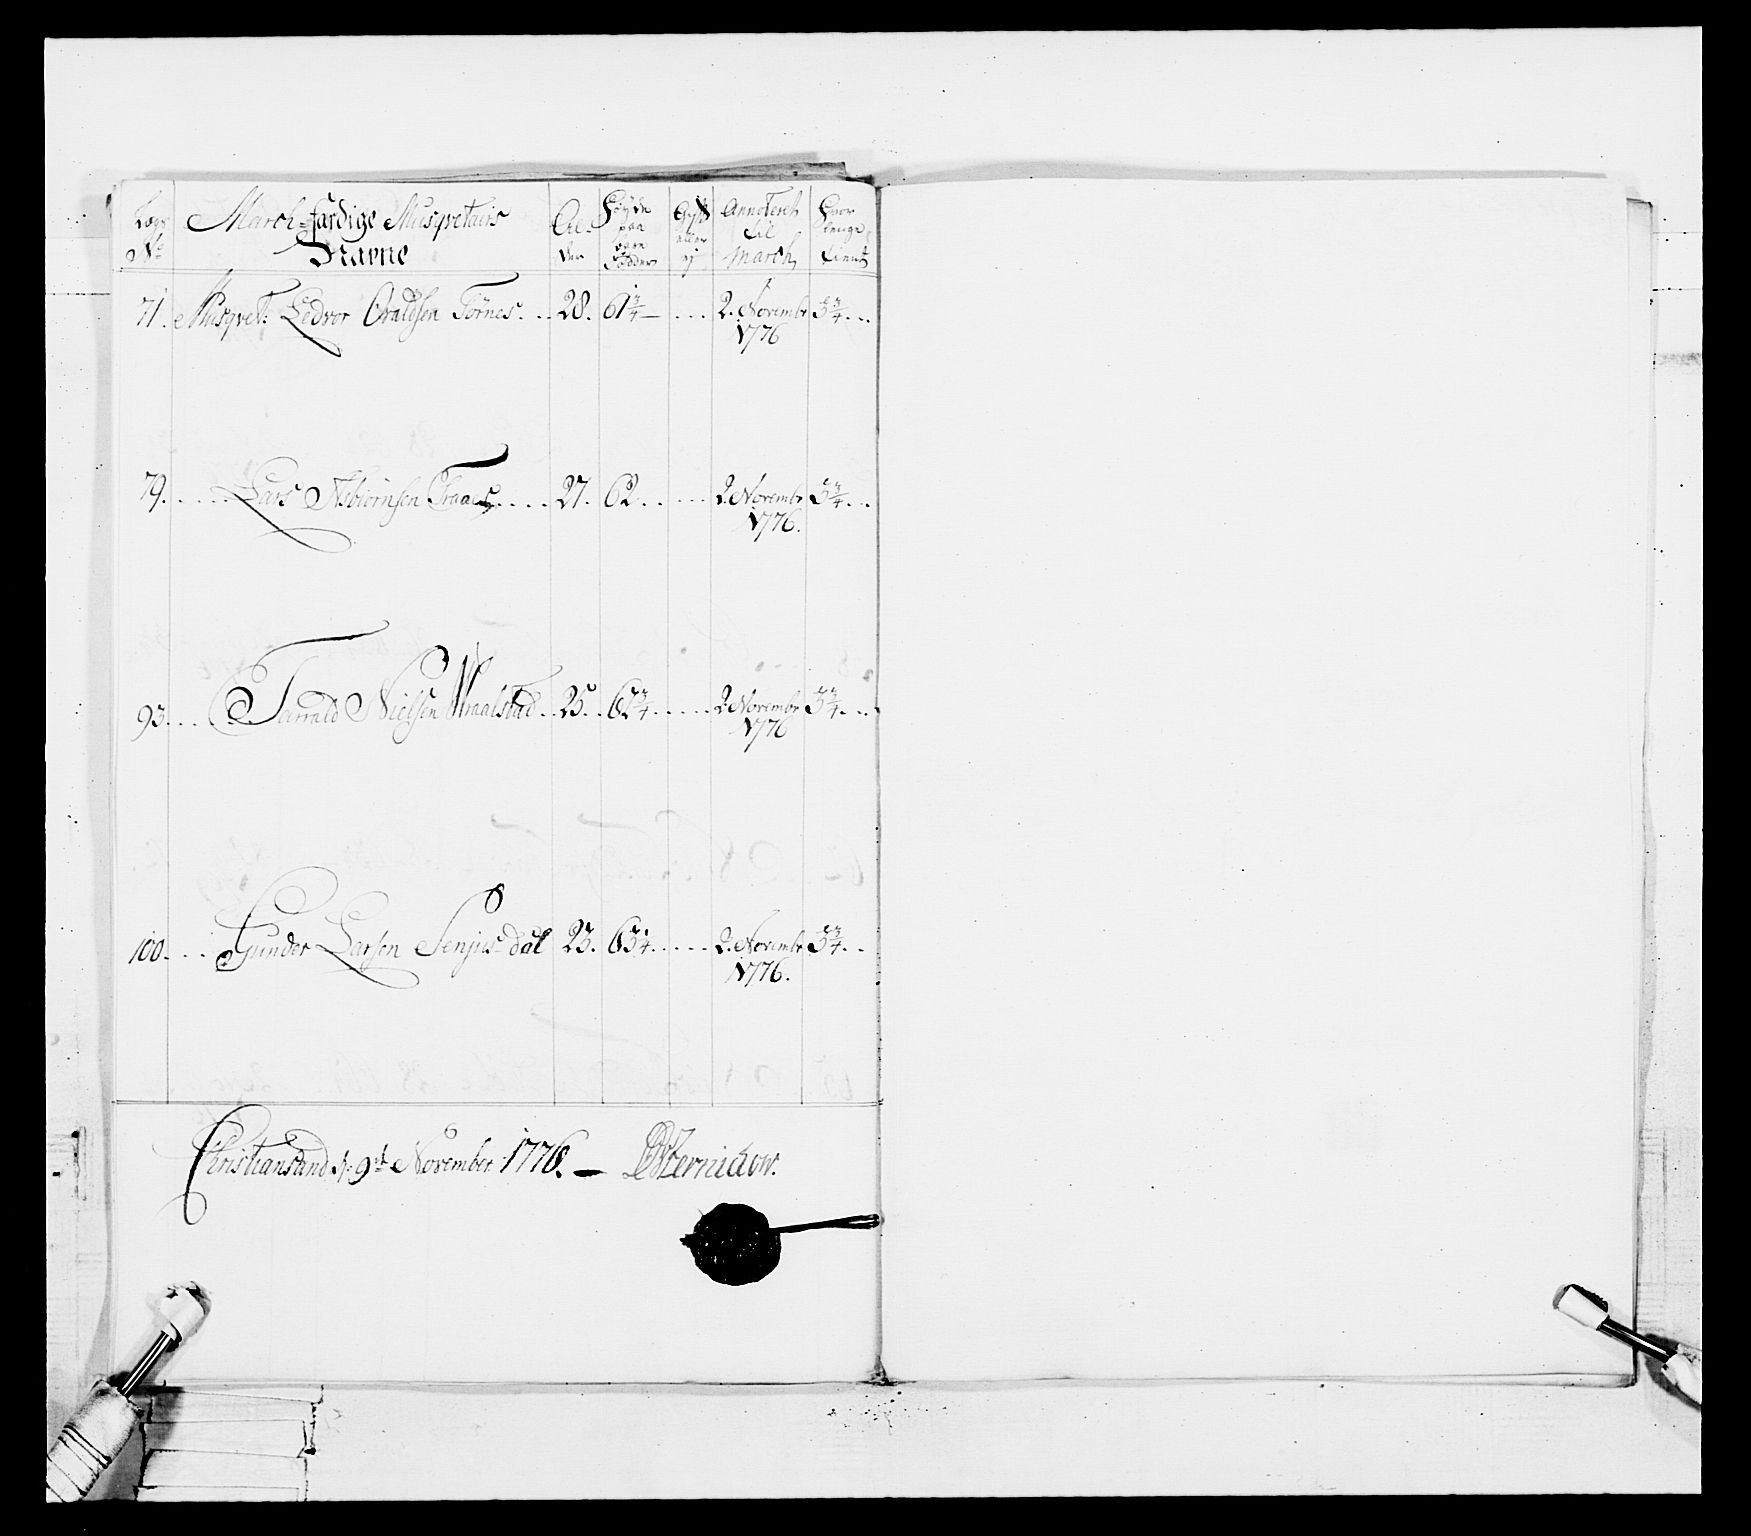 Lægs No
March-færdige Musqvetairs Navne
Al- der
Høyde paa bare Fødder
Gift eller ej
Annoteret til March
Hvor lenge tient
71. Musqvet: Ledvor Oraldsen Tørnes... 28. 61¾ — ... 2. Novembr 1776 3¾...
79..... Lars Asbiörnsen Traaes.... 27. 62..... 2. Novembr 1776. 3¾...
93..... Tarrald Nielsen Wraalstad.. 25.. 62¾..... 2. Novembr 1776 3¾...
100.... Gunder Larsen Senjus-dal 23. 63¼..... 2. Novembr 1776. 3¾..
Christiansand d: 9de November 1776. —